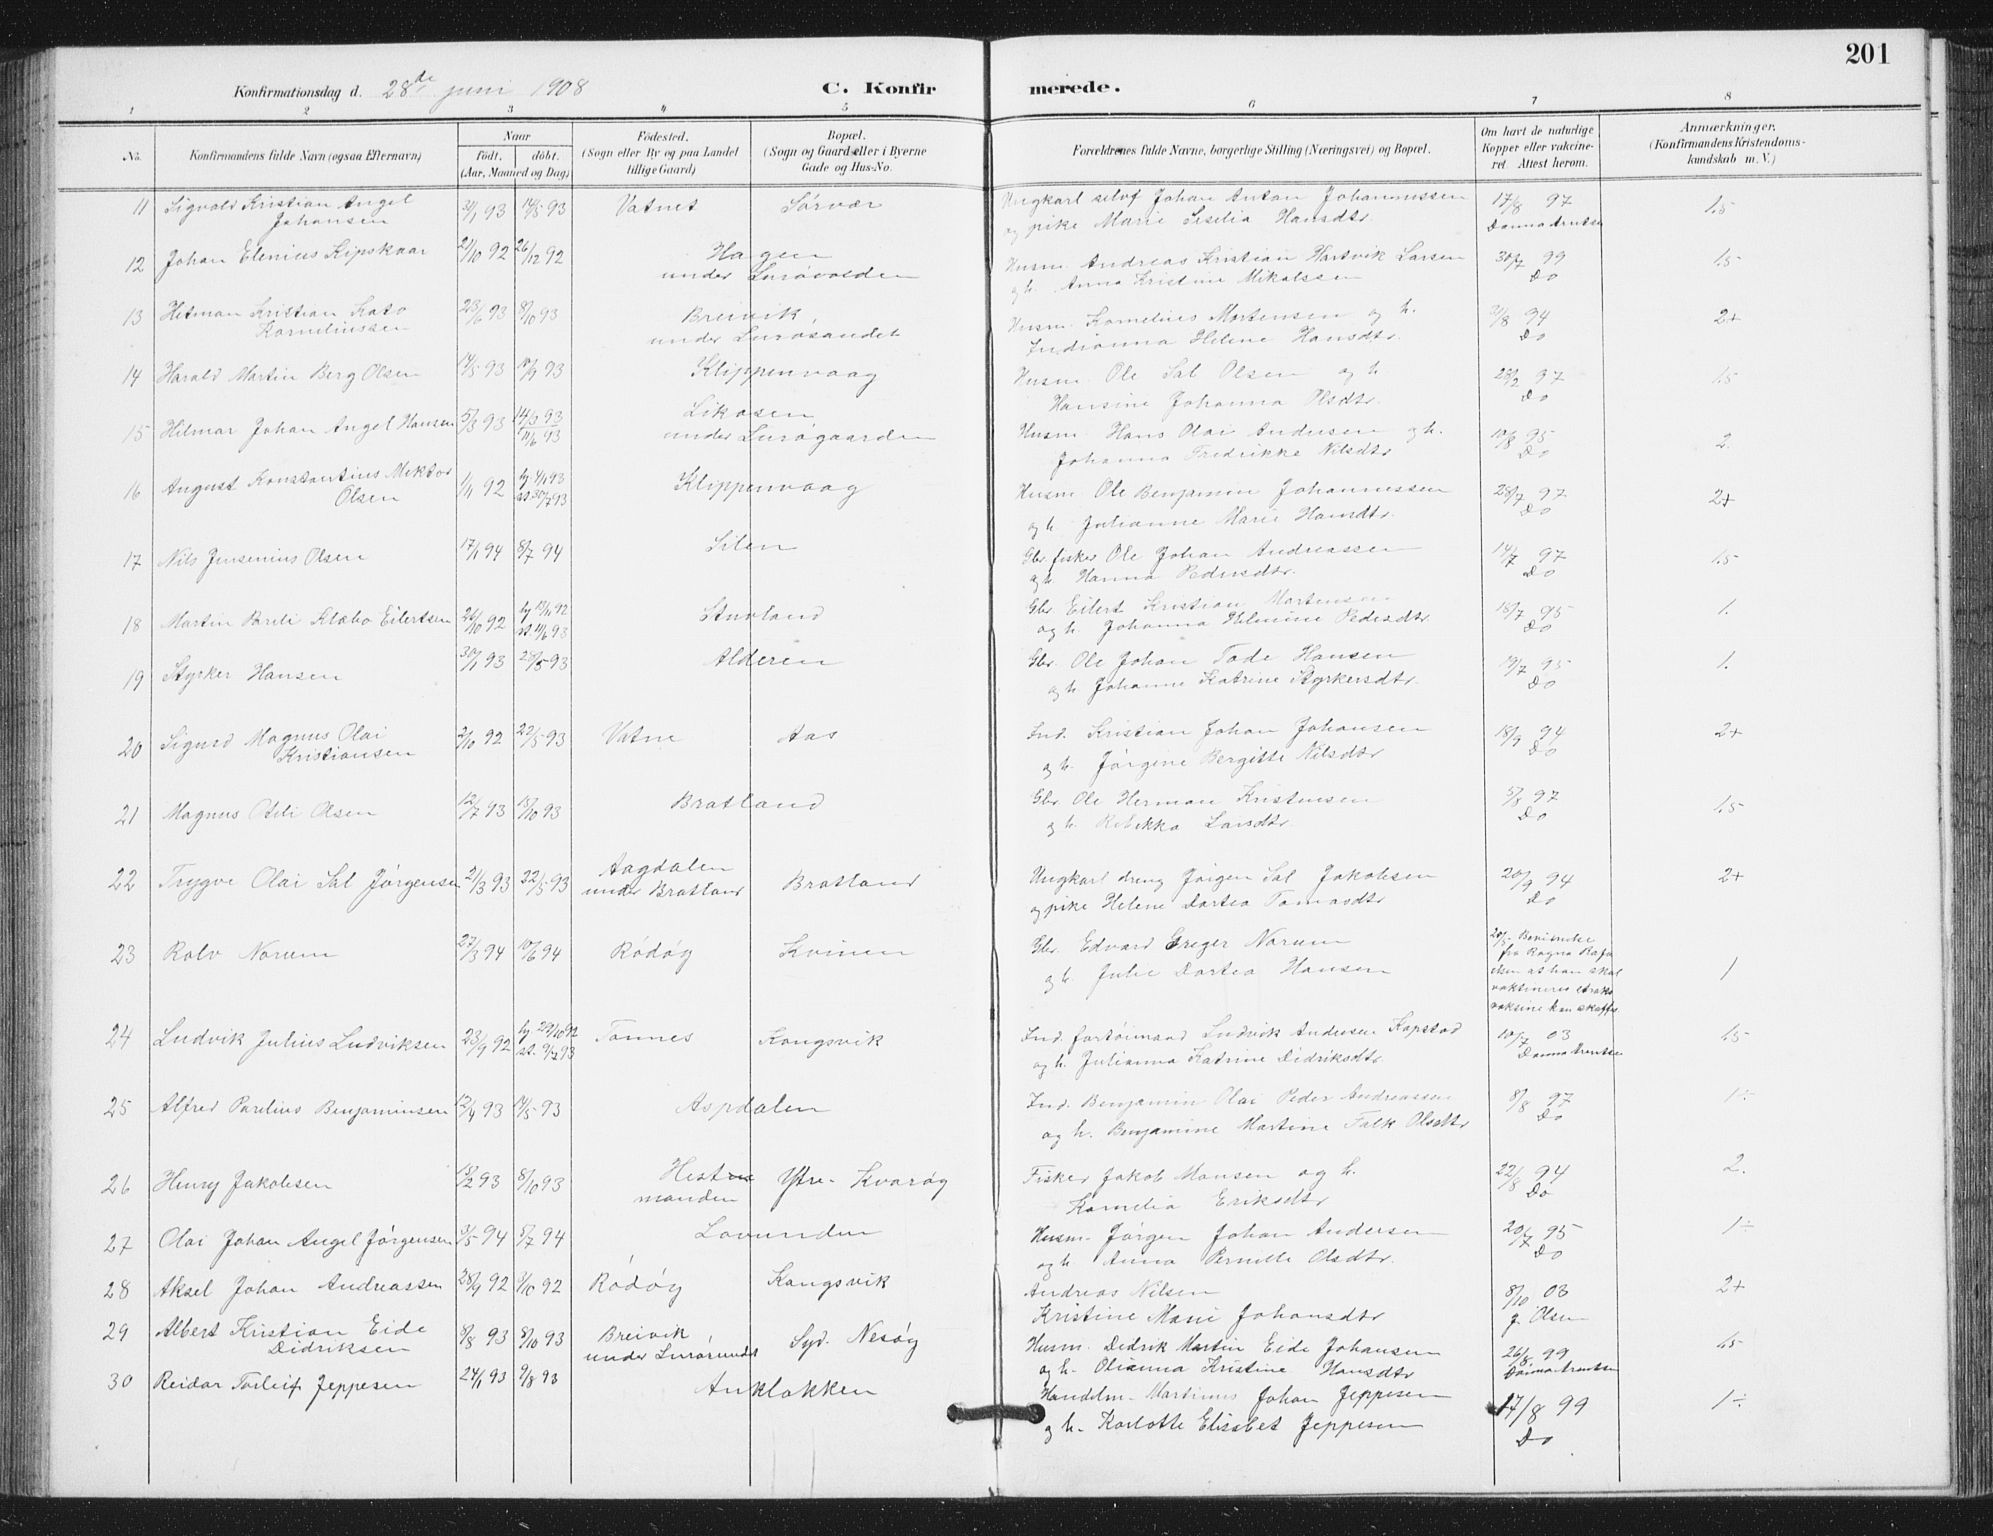 201
Konfirmationsdag d. 28de juni 1908 C. Konfirmerede.
1 2 3 4 5 6 7 8
No. Konfirmandens fulde Navn (ogsaa Efternavn) Naar født, døbt. (Aar, Maaned og Dag) Fødested. (Sogn eller By og paa Landet tillige Gaard) Bopæl. (Sogn og Gaard eller i Byerne Gade og Hus-No. Forældrenes fulde Navne, borgerlige Stilling (Næringsvei) og Bopæl. Om havt de naturlige Kopper eller vakcineret. Attest herom. Anmærkninger. (Konfirmandens Kristendomskundskab m. V.)
11 Sigvald Kristian Angel 14/5 93 Vatnet Sørvær Ungkarl selvf Johan Anton Johannessen 17/8 97 1.5
Johansen og pike Marie Sesilia Hansdtr.
12 Johan Elenius Kipskaar 21/10 92 26/12 92 Hagen Husm. Andreas Kristian Hartvik Larsen 30/7 99 1.5
under Lurøvolden og h. Anna Kristine Mikalssen Do
13 Kristian Kato 23/6 93 8/10 93 Breivik Husm. Kornelius Mortensen og h. 94 2+
Korneliussen under Lurøsandet Indianna Helene Hansdtr. Do
14 Harald Martin Berg Olsen 14/5 93 10/9 93 Klippenvaag Husm. Ole Sal Olsen og h 1.5
Hansine Johanna Olsdtr. Do
15 Hilmar Johan Angel Hansen 5/3 93 14/3 93 Likosen Husm. Hans Olai Andersen og h. 10/8 95 2.
11/6 93 under Lurøgaarden Johanna Fredrikke Nilsdtr Do
16 August Konstantius Mektor 1/1 92 Klippenvaag Husm. Ole Benjamin Johannessen 28/7 97 2+
Olsen st 30/7 93 og h. Julianne Marie Hansdtr. Do
17 Nils Jensenius Olsen 17/1 94 8/7 94 Silen Gbr. fisker Ole Johan Andreassen 14/7 97 1.5
og h. Hanna Pedersdtr. Do
18 Martin Parili Klæbo Eilertsen 26/10 92 Stuvland Gbr. Eilert Kristian Mortensen 18/7 95 1.
st 11/6 93 og h. Johanna Helmine Pedersdtr. Do
19 Styrker Hansen 30/1 93 28/5 93 Alderen Gbr. Ole Johan Tode Hansen 19/7 95 1.
og h. Johanne Katrine Styrkersdtr. Do
20 Sigurd Magnus Olai 2/10 92 22/5 93 Vatne Aas Ind. Kristian Johan Johansen 18/9 94 2+
Kristiansen og h. Jørgine Bergitte Nilsdtr Do
21 Magnus Otili Olsen 12/7 93 15/10 93 Bratland Gbr. Ole Herman Kristensen 5/8 97 1.5
og h. Rebekka Larsdtr. Do
22 Trygve Olai Sal Jørgensen 21/3 93 22/5 93 Aagdalen Bratland Ungkarl dreng Jørgen Sal Jakobsen 20/9 94 2+
under Bratland og pike Helene Dortea Tomasdtr Do
23 Rolv Norum 27/3 94 10/6 94 Rødøy Kvinen Gbr. Edvard Greger Norum 20/5 1
og h. Julie Dortea Hansen fra Ragna
at han skal
vaksineres straks
vaksine kan skaffes
24 Ludvik Julius Ludviksen 23/9 92 by 29/10 92 Tonnes Kongsvik Ind. fartøimand Ludvik Andersen Kapstad 10/7 03 1.5
st. 9/7 93 og h. Julianna Katrine Didriksdtr.
25 Alfred Parelius Benjaminsen 12/4 93 14/5 93 Aspdalen Ind. Benjamin Olai Peder Andreassen 8/8 97 1÷
og h. Benjamine Martine Falk Olsdtr Do
26 Henry Jakobsen 18/2 93 8/10 93 Hestmanden Ytre-Kvarøy Fisker Jakob Hansen og h. 22/8 94 2.
Kornelia Eriksdtr Do
27 Olai Johan Angel Jørgensen 31/5 94 5/7 94 Lovunden Husm. Jørgen Johan Andersen 20/7 95 1÷
og h. Anna Pernille Olsdtr. Do
28 Aksel Johan Andreassen 28/9 92 9/10 92 Rødøy Kongsvik Andreas Nilsen 8/10 03 2+
Kristine Marie Johansdtr J. Olsen
29 Albert Kristian Eide 8/8 93 8/10 93 Breivik Syd. Nesøy Husm. Didrik Martin Eide Johansen 26/8 99 1.5
Didriksen under Lurøsundet og h. Olianna Kristine Hansdtr
30 Reidar Torleif Jeppesen 24/1 93 9/8 93 Anklakken Handelm. Martinus Johan Jeppesen 17/8 99 1÷
og h. Karlotte Elisabet Jeppesen Do